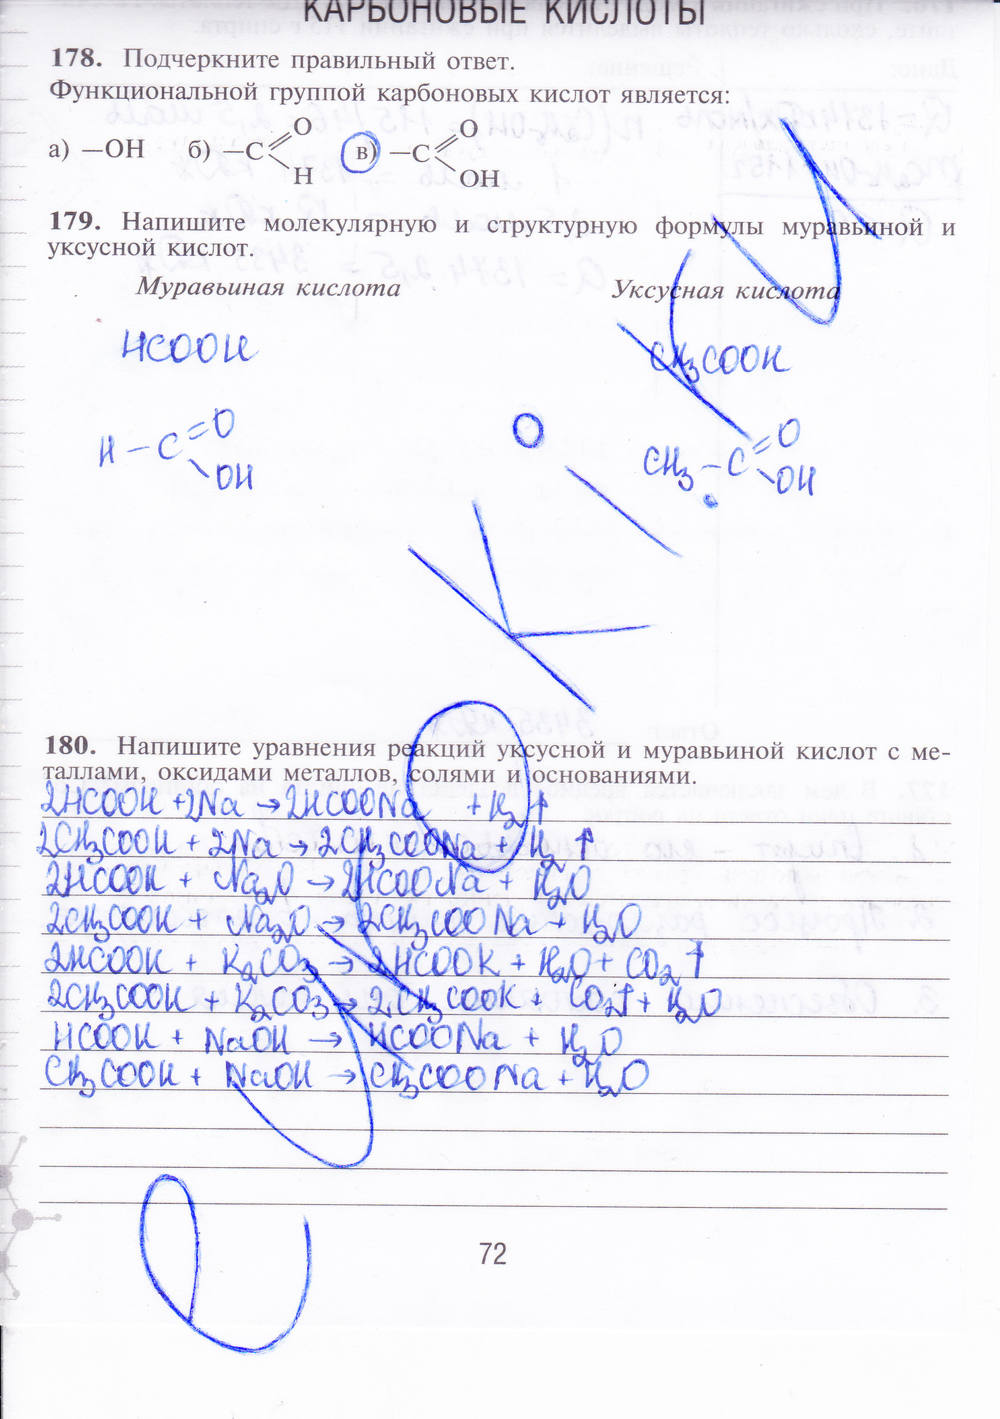 КАРБОНОВЫЕ КИСЛОТЫ
178. Подчеркните правильный ответ.
Функциональной группой карбоновых кислот является:
а) —OH б) —C=O H в) —C=O OH
179. Напишите молекулярную и структурную формулы муравьиной и
уксусной кислот.
Муравьиная кислота Уксусная кислота
HCOOH CH3COOH
H – C = O OH CH3 – C = O OH
180. Напишите уравнения реакций уксусной и муравьиной кислот с ме-
таллами, оксидами металлов, солями и основаниями.
2HCOOH + 2Na → 2HCOONa + H2↑
2CH3COOH + 2Na → 2CH3COONa + H2↑
2HCOOH + Na2O → 2HCOONa + H2O
2CH3COOH + Na2O → 2CH3COONa + H2O
2HCOOH + K2CO3 → 2HCOOK + H2O + CO2↑
2CH3COOH + K2CO3 → 2CH3COOK + CO2↑ + H2O
HCOOH + NaOH → HCOONa + H2O
CH3COOH + NaOH → CH3COONa + H2O
72